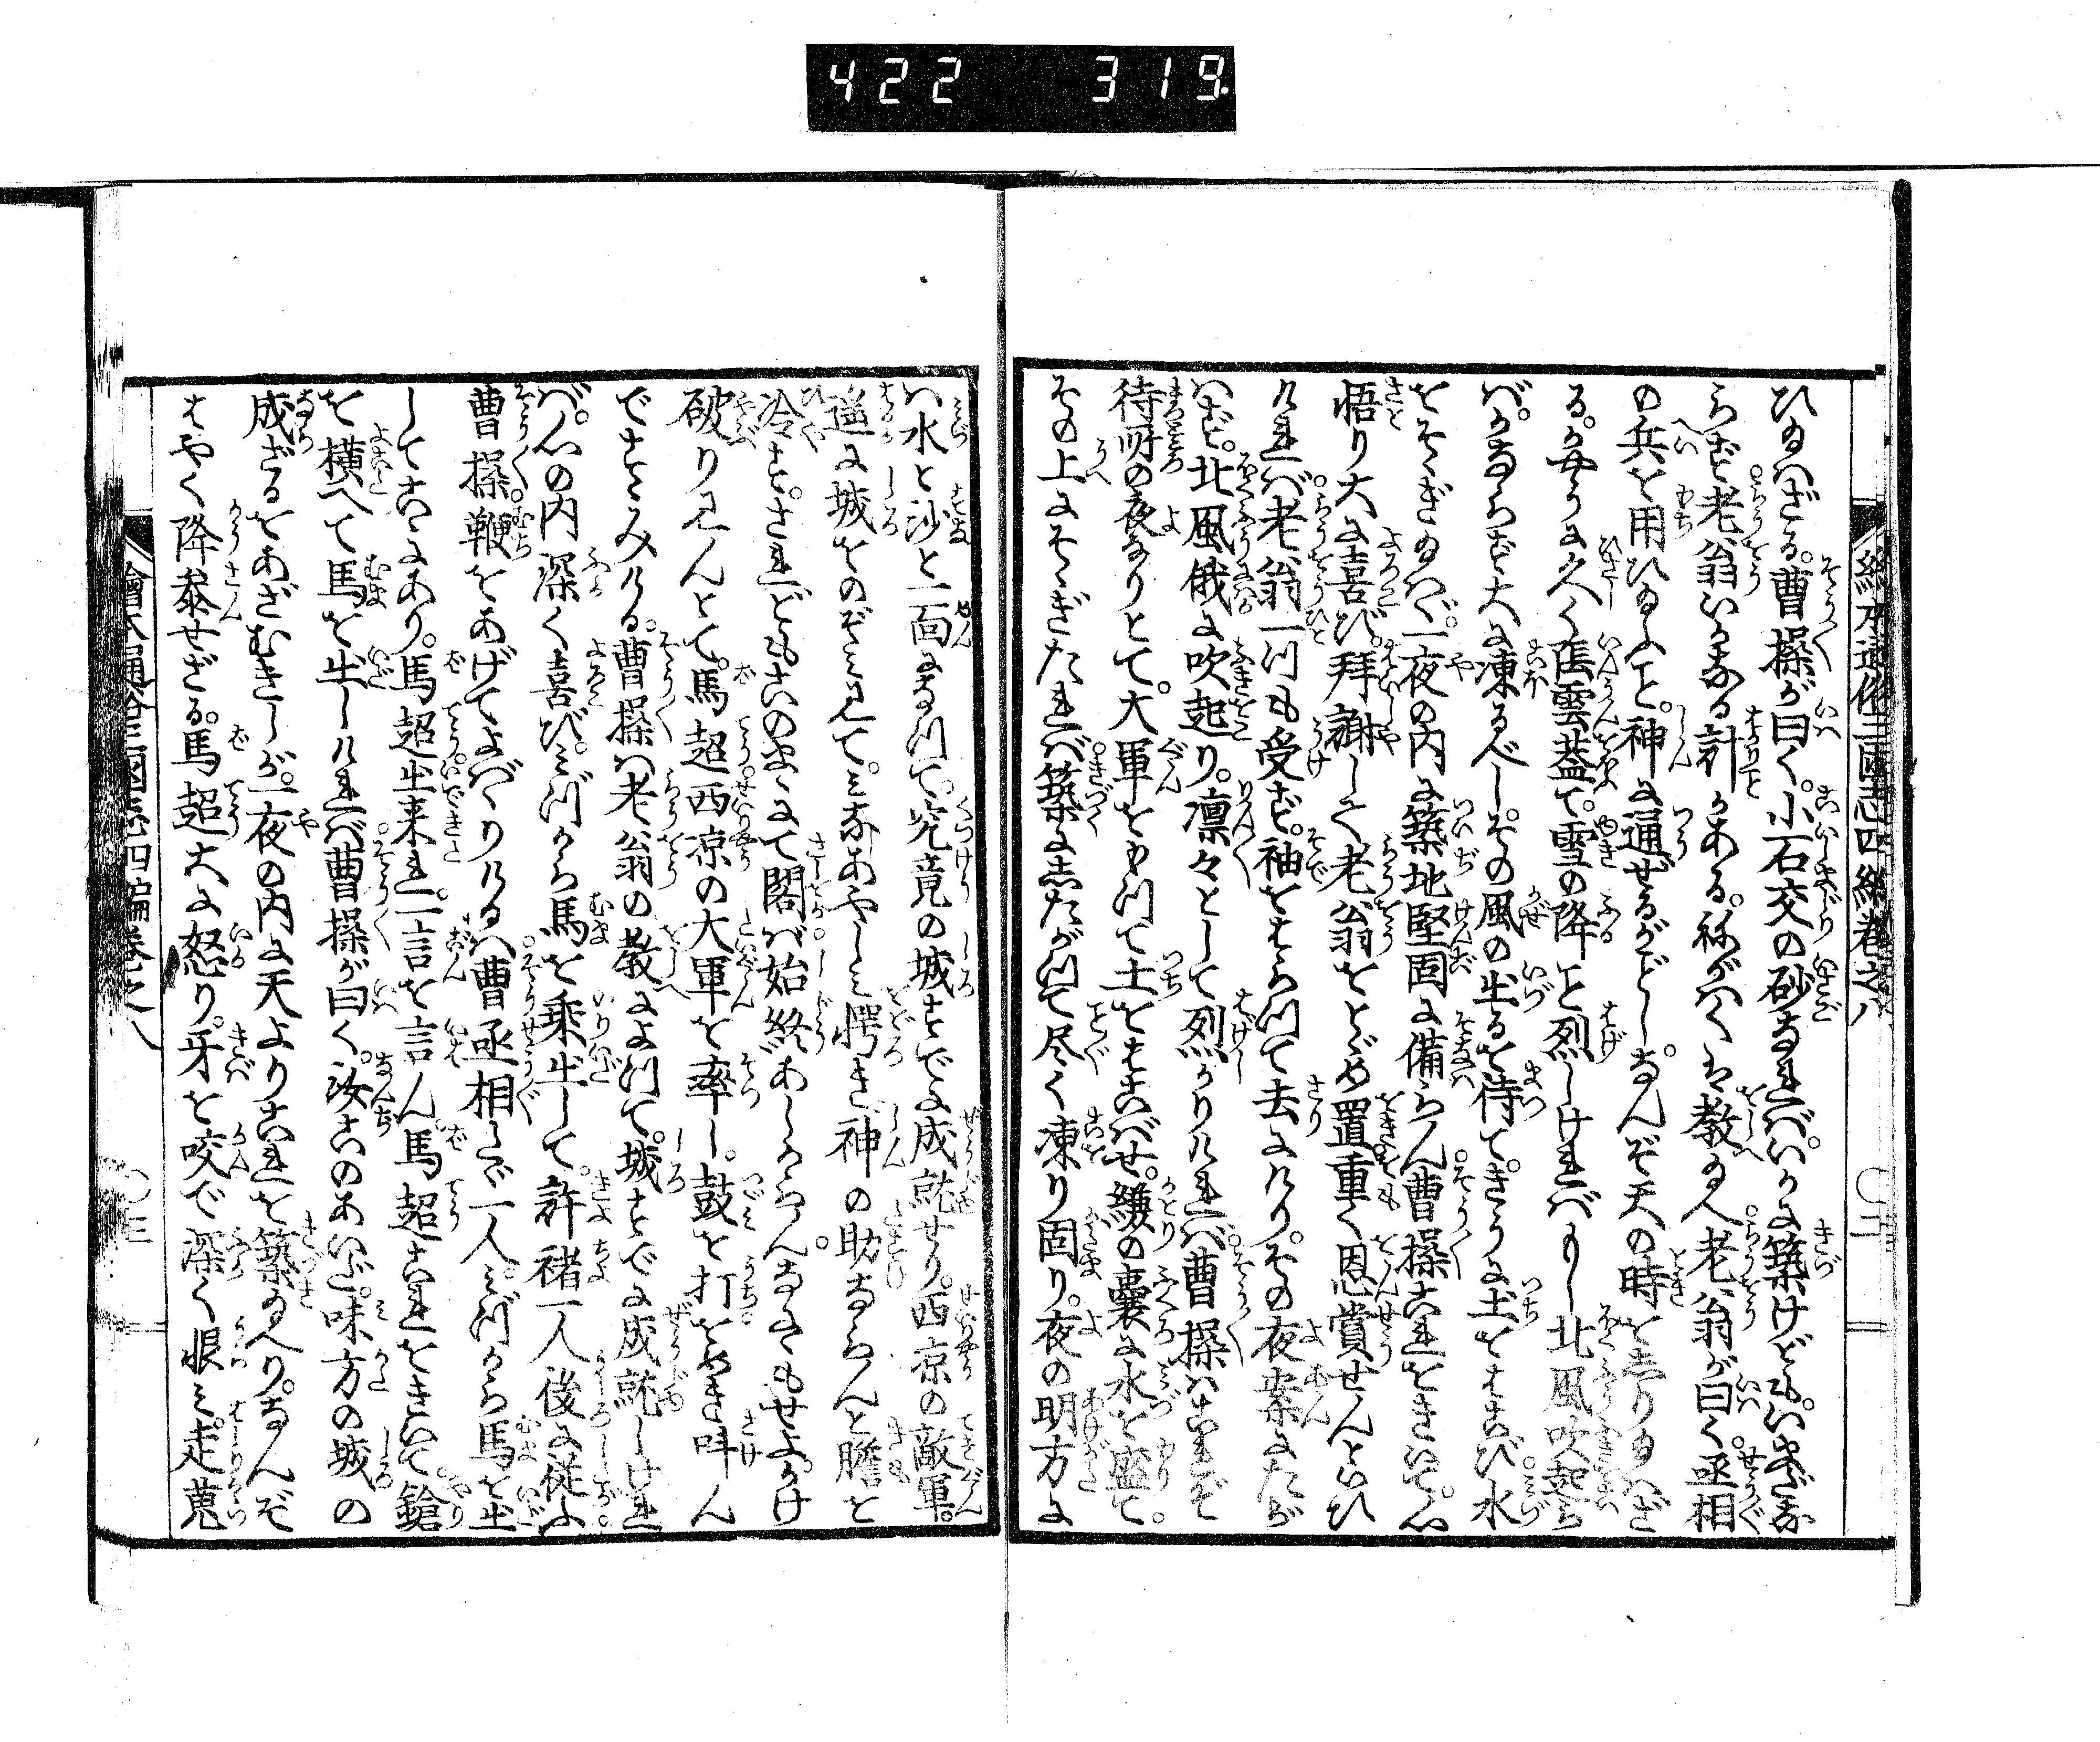 422 319
絵本通俗三国志四編巻之八
ひゐハざる。曹操が曰く。小石交の砂なれバ。いかに築けども。いまだな
らず老翁いかなる計かある。ねがハくハ教へ老翁が曰く。丞相
の兵を用ひ給ふこと。神に通ぜるがごとし。なんぞ天の時をしり給ハざ
る。かやうに久く陰雲蓋て。雪の降こと烈しけれバもし北風吹起ら
バ。かならず大に凍るべし。その風の出るを待て。きうに土をはこび水
をそゝぎ給ハゞ。一夜の内に築地堅固に備らん曹操これをきいて。心
悟り大に喜び。拝謝して老翁をとゞめ置重く恩賞せんといひ
けれバ老翁一つも受ず。袖をはらつて去にけり。その夜案にたが
ハず。北風俄に吹起り。凛々として烈かりけれバ曹操ハこれぞ
待所の夜なりとて。大軍をもつて土をはこバせ。縑の嚢に水を盛て。
その上にそゝぎたれバ築にしたがつて尽く凍り固り。夜の明方に
ハ水と沙と一面になつて。究竟の城すでに成就せり。西凉の敵軍。
遥に城をのぞミ見て。ミなあやしミ愕き神の助ならんと膽を
冷す。されどもこのまゝにて閣バ始終あしからん。なにもせよかけ
破り見んとて。馬超西凉の大軍を率し。鼓を打をめき叫ん
ですゝみける。曹操ハ老翁の教によつて。城すでに成就しけれ
バ。心の内深く喜び。ミづから馬を乗出して。許褚一人後に従ふ
曹操鞭をあげてよばゝりけるハ曹丞相たゞ一人。ミづから馬を出
してこゝにあり。馬超出来れ。一言を言ん。馬超これをきいて鎗
を横へて馬を出しけれバ曹操が曰く。汝このあいだ。味方の城の
成ざるをあざむきしが。一夜の内に天よりこれを築給へり。なんぞ
はやく降参せざる。馬超大に怒り。牙を咬で深く恨ミ。走蒐
繪本通俗三國志四編巻之八